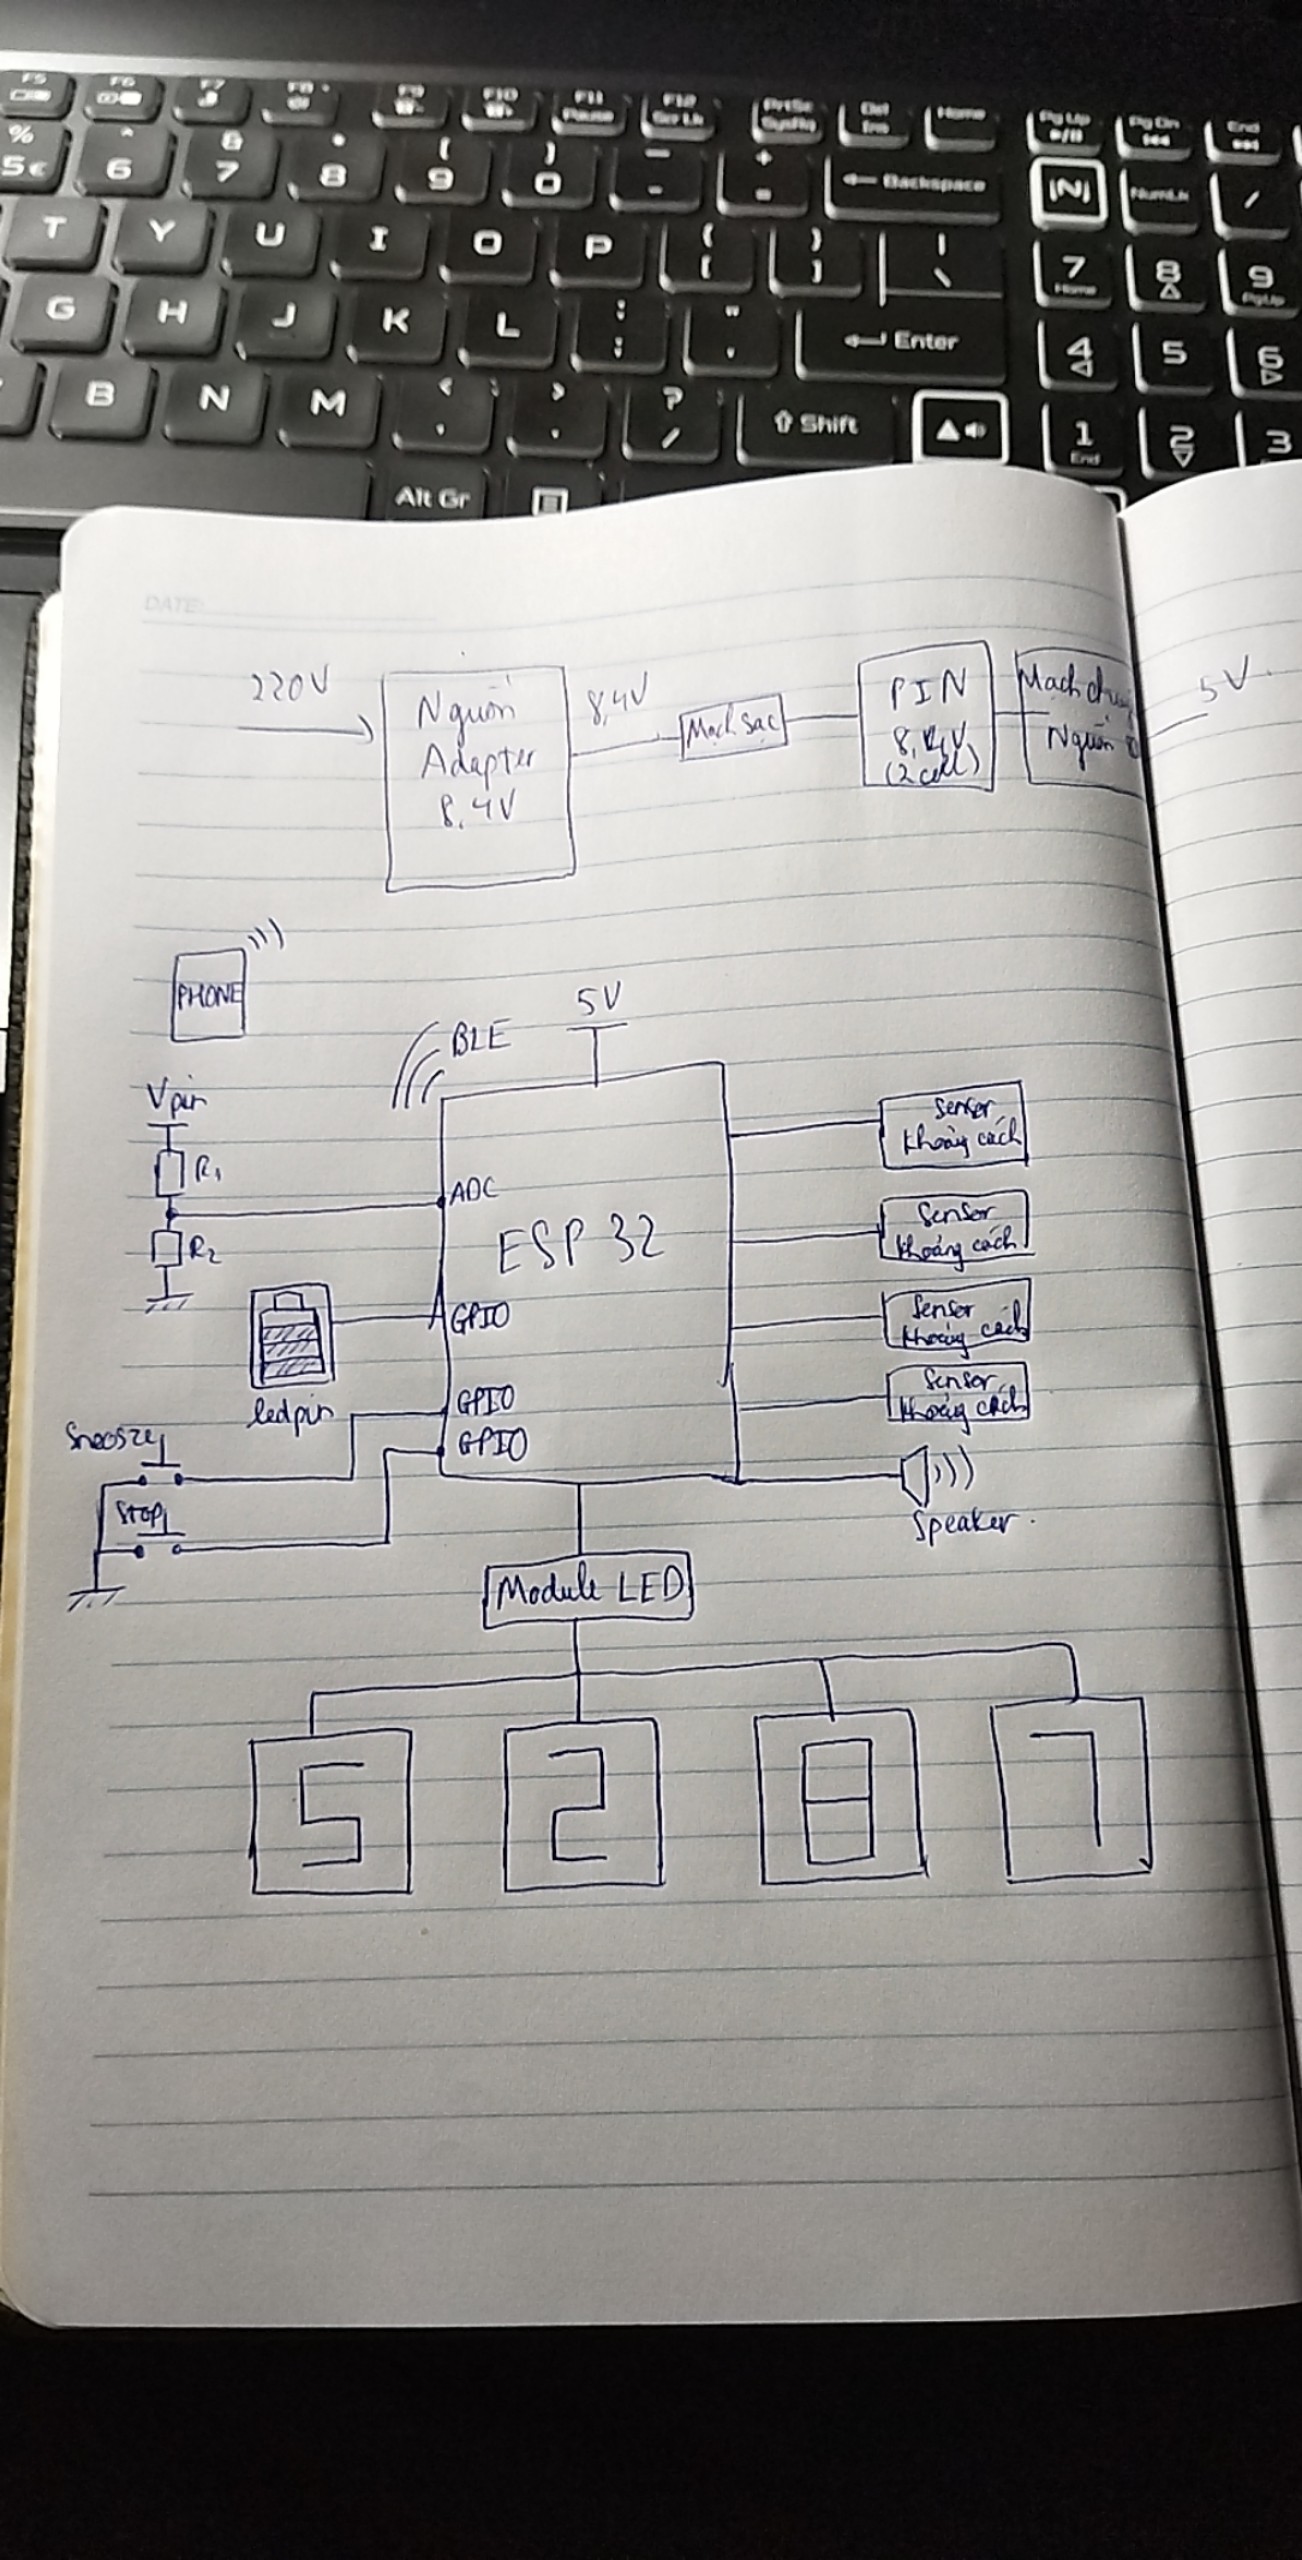 F5 F6 F7 F8 F9 F10 F11 F12 PrtSc Del Home Pg Up Pg Dn End
Pause Scr Lk SysRq Ins
% ^ & * ( ) _ +
5 € 6 7 8 9 0 - = Backspace NumLk /
T Y U I O P { [ } ] | \ 7 Home 8 9 PgUp
G H J K L : ; " ' Enter 4 5 6
B N M < , > . ? / Shift 1 End 2 3
Alt Gr
DATE:
220V
Nguồn
Adapter
8,4V
8,4V
Mạch sạc
PIN
(2 cell)
Mạch
Nguồn
5V
PHONE
BLE
5V
Vpin
R1
R2
ADC
ESP 32
GPIO
ledpin
GPIO
GPIO
Snoosze
Stop
Sensor
khoảng cách
Sensor
khoảng cách
Sensor
khoảng cách
Sensor
khoảng cách
Speaker
Module LED
5 2 8 7